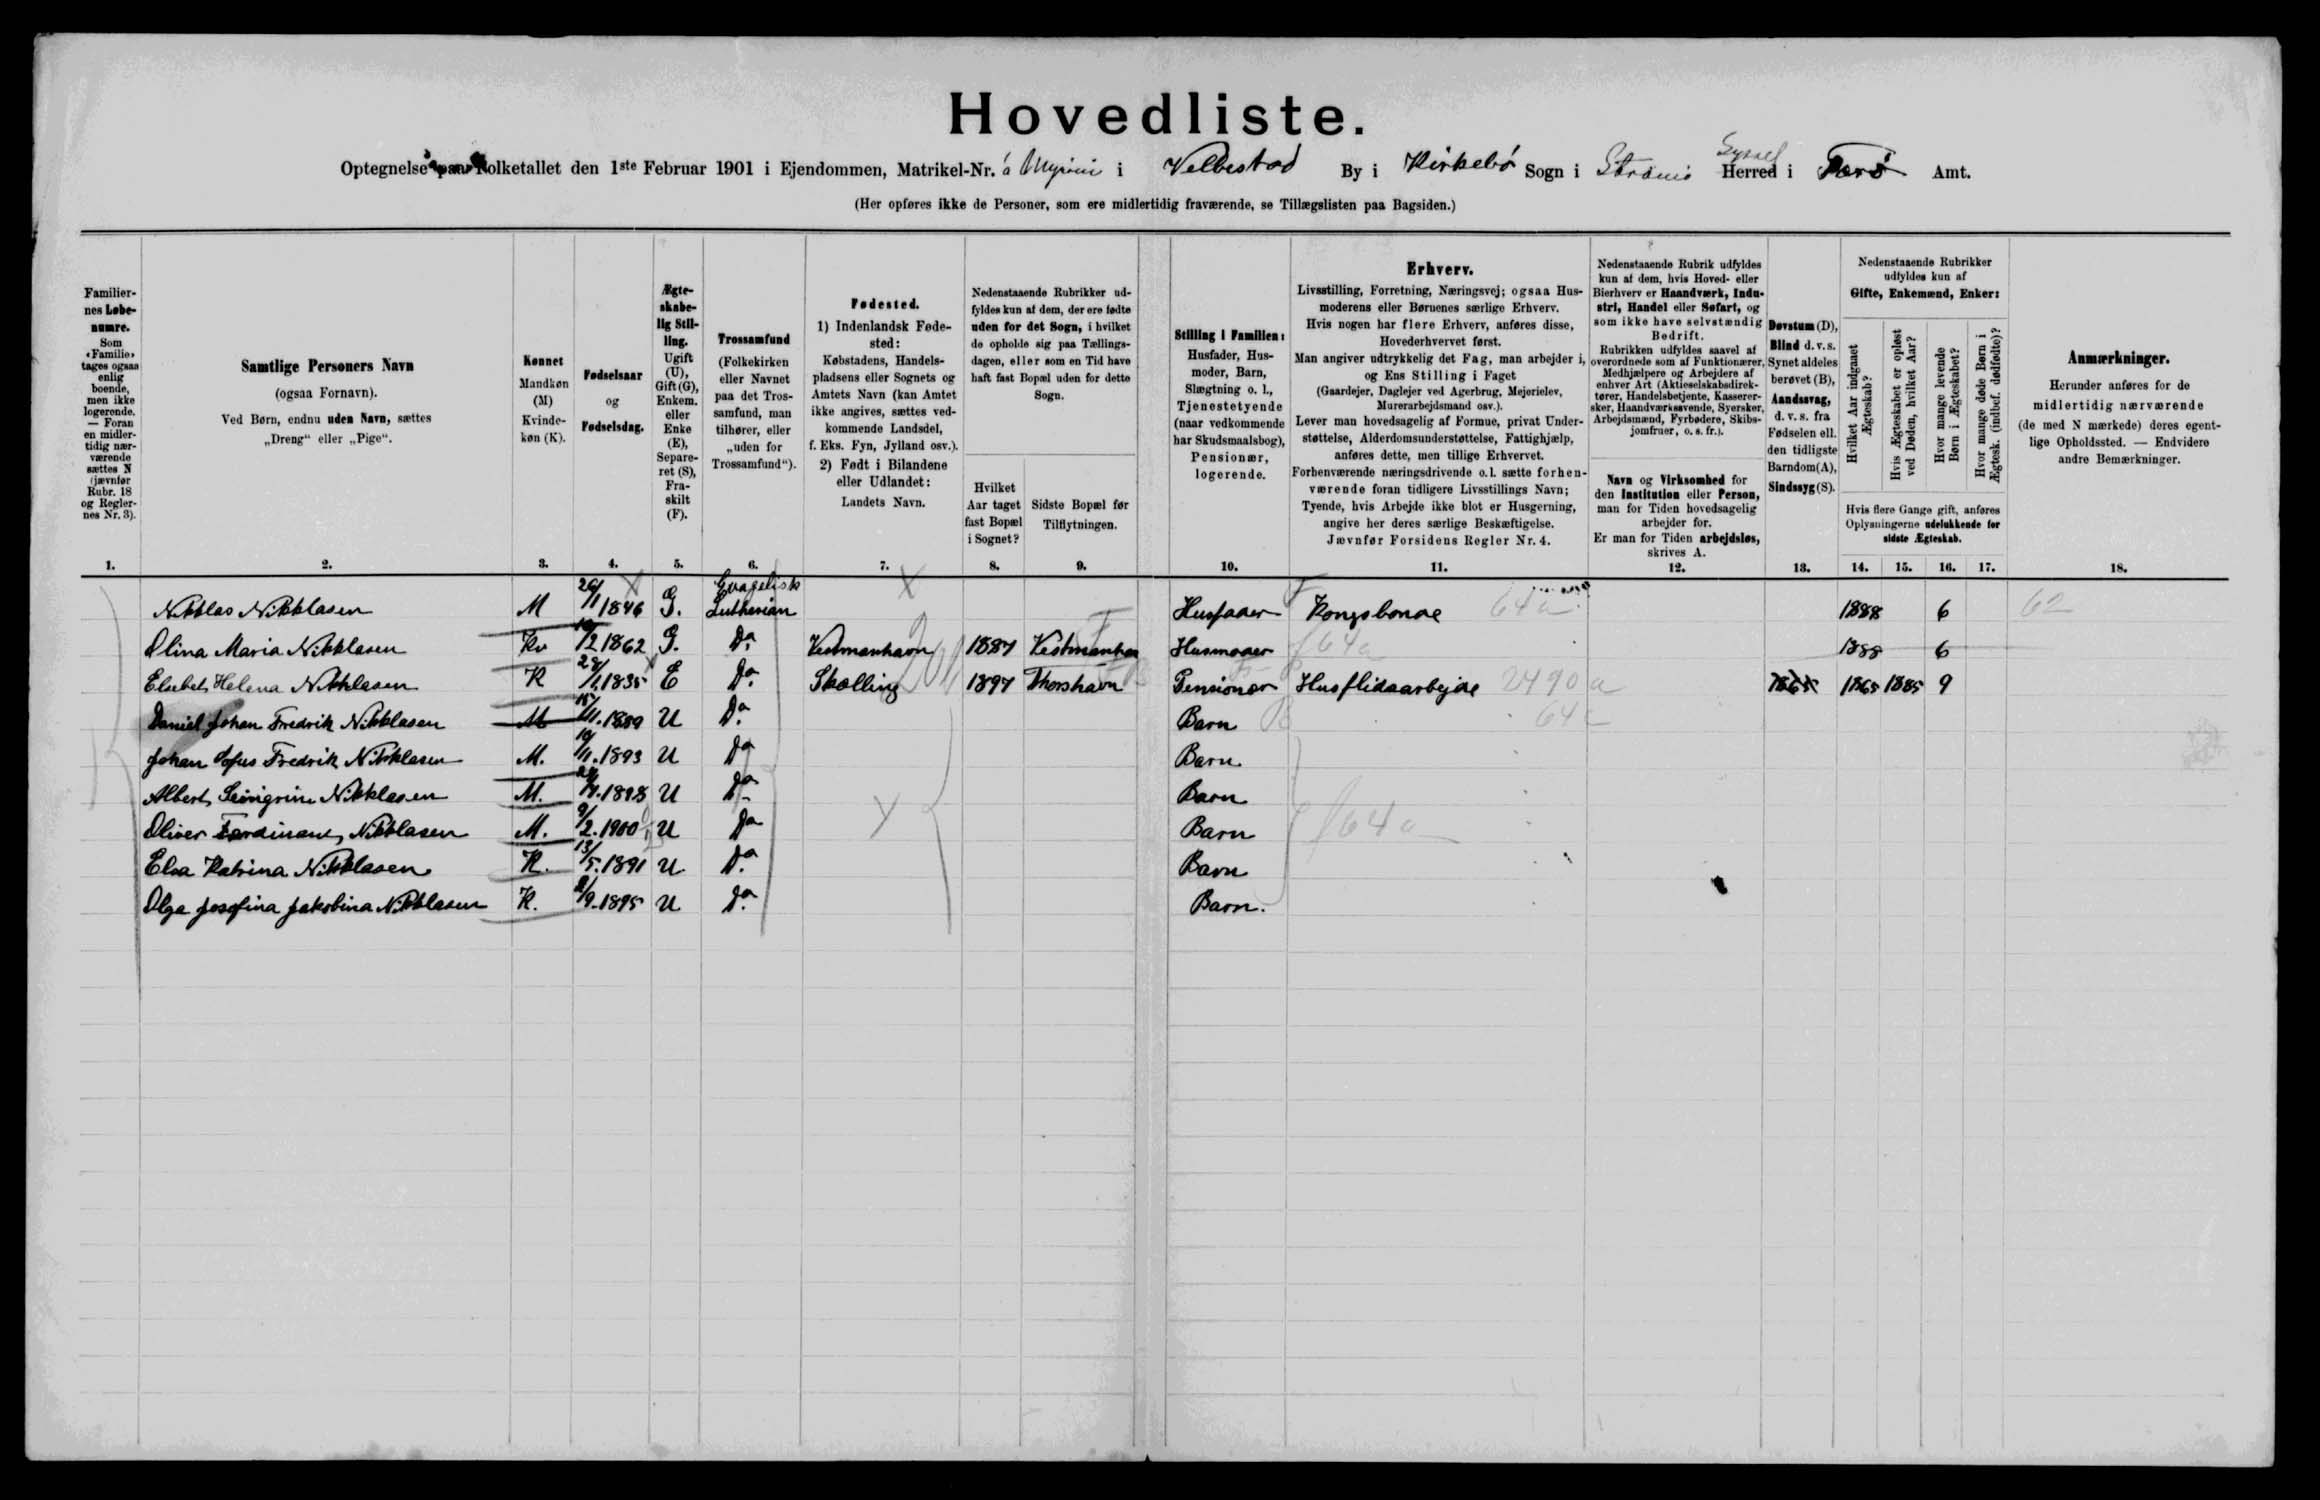 Hovedliste.
Optegnelse paa Folketallet den 1ste Februar 1901 i Ejendommen, Matrikel-Nr. á Myrini i Velbestad By i Kirkebø Sogn i Strømø Syssel Herred i Færø Amt.
(Her opføres ikke de Personer, som ere midlertidig fraværende, se Tillægslisten paa Bagsiden.)
Familier-
nes Løbe-
numre.
Som
«Familie»
tages ogsaa
enlig
boende,
men ikke
logerende.
— Foran
en midler-
tidig nær-
værende
sættes N
(jævnfør
Rubr. 18
og Regler-
nes Nr. 3).
Samtlige Personers Navn
(ogsaa Fornavn).
Ved Børn, endnu uden Navn, sættes
„Dreng“ eller „Pige“.
Kønnet
Mandkøn
(M)
Kvinde-
køn (K).
Fødselsaar
og
Fødselsdag.
Ægte-
skabe-
lig Stil-
ling.
Ugift
(U),
Gift (G),
Enkem.
eller
Enke
(E),
Separe-
ret (S),
Fra-
skilt
(F).
Trossamfund
(Folkekirken
eller Navnet
paa det Tros-
samfund, man
tilhører, eller
„uden for
Trossamfund“).
Fødested.
1) Indenlandsk Føde-
sted:
Købstadens, Handels-
pladsens eller Sognets og
Amtets Navn (kan Amtet
ikke angives, sættes ved-
kommende Landsdel,
f. Eks. Fyn, Jylland osv.).
2) Født i Bilandene
eller Udlandet:
Landets Navn.
Nedenstaaende Rubrikker ud-
fyldes kun af dem, der ere fødte
uden for det Sogn, i hvilket
de opholde sig paa Tællings-
dagen, eller som en Tid have
haft fast Bopæl uden for dette
Sogn.
Hvilket
Aar taget
fast Bopæl
i Sognet?
Sidste Bopæl før
Tilflytningen.
Stilling i Familien:
Husfader, Hus-
moder, Barn,
Slægtning o. l.,
Tjenestetyende
(naar vedkommende
har Skudsmaalsbog),
Pensionær,
logerende.
Erhverv.
Livsstilling, Forretning, Næringsvej; ogsaa Hus-
moderens eller Børnenes særlige Erhverv.
Hvis nogen har flere Erhverv, anføres disse,
Hovederhvervet først.
Man angiver udtrykkelig det Fag, man arbejder i,
og Ens Stilling i Faget
(Gaardejer, Daglejer ved Agerbrug, Mejerielev,
Murerarbejdsmand osv.).
Lever man hovedsagelig af Formue, privat Under-
støttelse, Alderdomsunderstøttelse, Fattighjælp,
anføres dette, men tillige Erhvervet.
Forhenværende næringsdrivende o. l. sætte forhen-
værende foran tidligere Livsstillings Navn;
Tyende, hvis Arbejde ikke blot er Husgerning,
angive her deres særlige Beskæftigelse.
Jævnfør Forsidens Regler Nr. 4.
Nedenstaaende Rubrik udfyldes
kun af dem, hvis Hoved- eller
Bierhverv er Haandværk, Indu-
stri, Handel eller Søfart, og
som ikke have selvstændig
Bedrift.
Rubrikken udfyldes saavel af
overordnede som af Funktionærer,
Medhjælpere og Arbejdere af
enhver Art (Aktieselskabsdirek-
tører, Handelsbetjente, Kasserer-
sker, Haandværkssvende, Syersker,
Arbejdsmænd, Fyrbødere, Skibs-
jomfruer, o. s. fr.).
Navn og Virksomhed for
den Institution eller Person,
man for Tiden hovedsagelig
arbejder for.
Er man for Tiden arbejdsløs,
skrives A.
Døvstum (D),
Blind d. v. s.
Synet aldeles
berøvet (B),
Aandssvag,
d. v. s. fra
Fødselen ell.
den tidligste
Barndom (A),
Sindssyg (S).
Nedenstaaende Rubrikker
udfyldes kun af
Gifte, Enkemænd, Enker:
Hvilket Aar indgaaet
Ægteskab?
Hvis Ægteskabet er opløst
ved Døden, hvilket Aar?
Hvor mange levende
Børn i Ægteskabet?
Hvor mange døde Børn i
Ægtesk. (indbef. dødfødte)?
Hvis flere Gange gift, anføres
Oplysningerne udelukkende for
sidste Ægteskab.
Anmærkninger.
Herunder anføres for de
midlertidig nærværende
(de med N mærkede) deres egent-
lige Opholdssted. — Endvidere
andre Bemærkninger.
1. 2. 3. 4. 5. 6. 7. 8. 9. 10. 11. 12. 13. 14. 15. 16. 17. 18.
Nikklas Nikklasen M 26/1 1846 G. Evagelisk Lutherian Husfader Kongsbonde 64a 1888 6 62
Olina Maria Nikklasen Kv /2 1862 G. Do. Vestmanhavn 1887 Vestmanhav Husmoder 64a 1888 6
Elsebet Helena Nikklasen K 28/1 1835 E Do. Skælling 1897 Thorshavn Pensionær Husflidsarbejde 2490a 1865 1865 1885 9
Daniel Johan Fredrik Nikklasen M 15/11.1889 U Do. Barn 64a
Johan Sofus Fredrik Nikklasen M. 10/11.1893 U Do Barn
Albert Nikklasen M. 1898 U Do Barn
Oliver Ferdinant Nikklasen M. 9/2.1900 U Do Barn 64a
Elsa Katrina Nikklasen K. 13/5.1891 U Do. Barn
Olga Josefina Jakobina Nikklasen K. /9.1895 U Do. Barn.